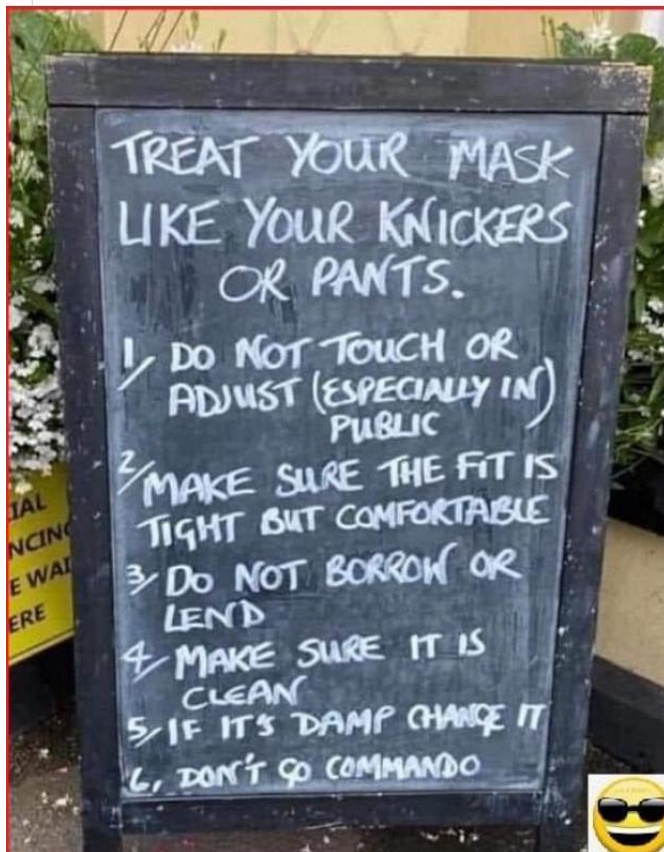 TREAT YOUR MASK
LIKE YOUR KNICKERS
OR PANTS.
1/ DO NOT TOUCH OR
ADJUST (ESPECIALLY IN)
PUBLIC
2/ MAKE SURE THE FIT IS
TIGHT BUT COMFORTABLE
3/ DO NOT BORROW OR
LEND
4/ MAKE SURE IT IS
CLEAN
5/ IF IT'S DAMP CHANGE IT
6, DON'T GO COMMANDO
IAL
NCING
E WAI
ERE